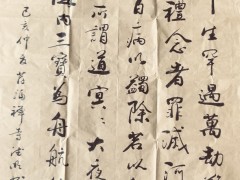 千生罕遇萬劫
禮念者罪滅河
百病以蠲除若以
所謂道冥冥大夜
海內三寶為舟航
己亥仲
禪寺